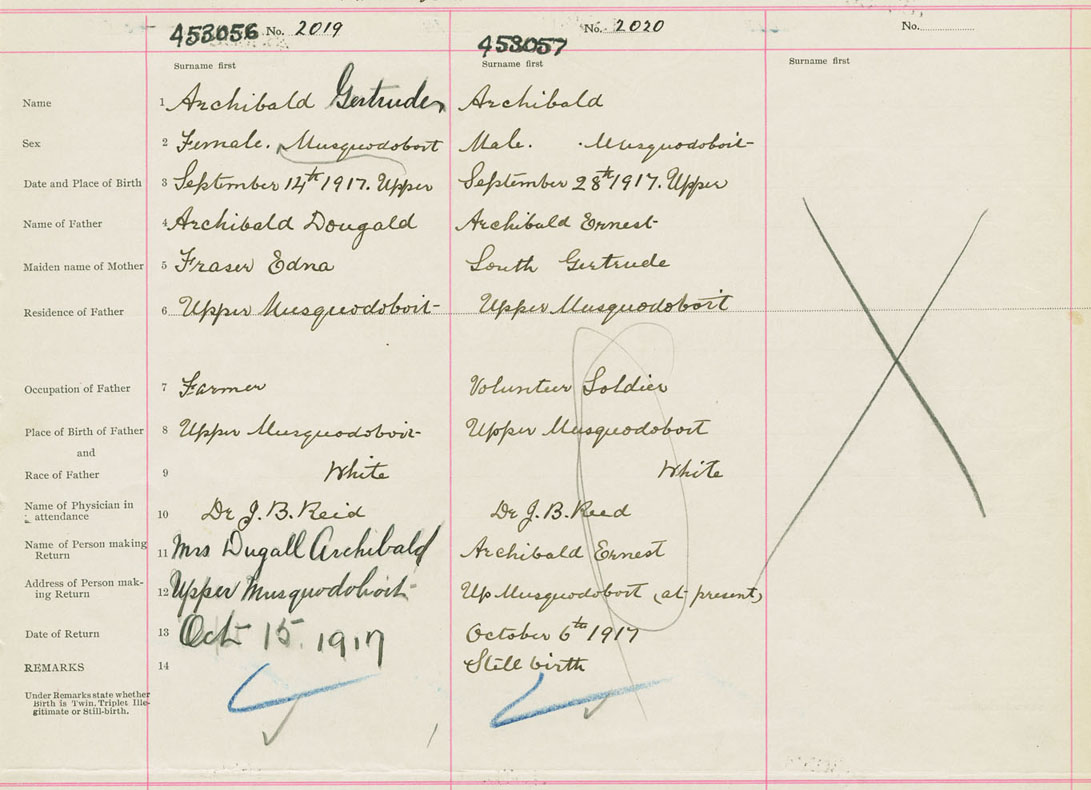 453056 No. 2019
453057 No. 2020
No.
Surname first
Surname first
Surname first
Name 1 Archibald Gertrude Archibald
Sex 2 Female. Musquodoboit Male. Musquodoboit
Date and Place of Birth 3 September 14th 1917. Upper September 28th 1917. Upper
Name of Father 4 Archibald Dougald Archibald Ernest
Maiden name of Mother 5 Fraser Edna South Gertrude
Residence of Father 6 Upper Musquodoboit Upper Musquodoboit
Occupation of Father 7 Farmer Volunteer Soldier
Place of Birth of Father 8 Upper Musquodoboit Upper Musquodoboit
and
Race of Father 9 White White
Name of Physician in
attendance 10 Dr J. B. Reid Dr J. B. Reed
Name of Person making
Return 11 Mrs Dugall Archibald Archibald Ernest
Address of Person mak-
ing Return 12 Upper Musquodoboit Up Musquodoboit (at present)
Date of Return 13 Oct 15 1917 October 6th 1917
REMARKS 14 Still birth
Under Remarks state whether
Birth is Twin, Triplet Ille-
gitimate or Still-birth.